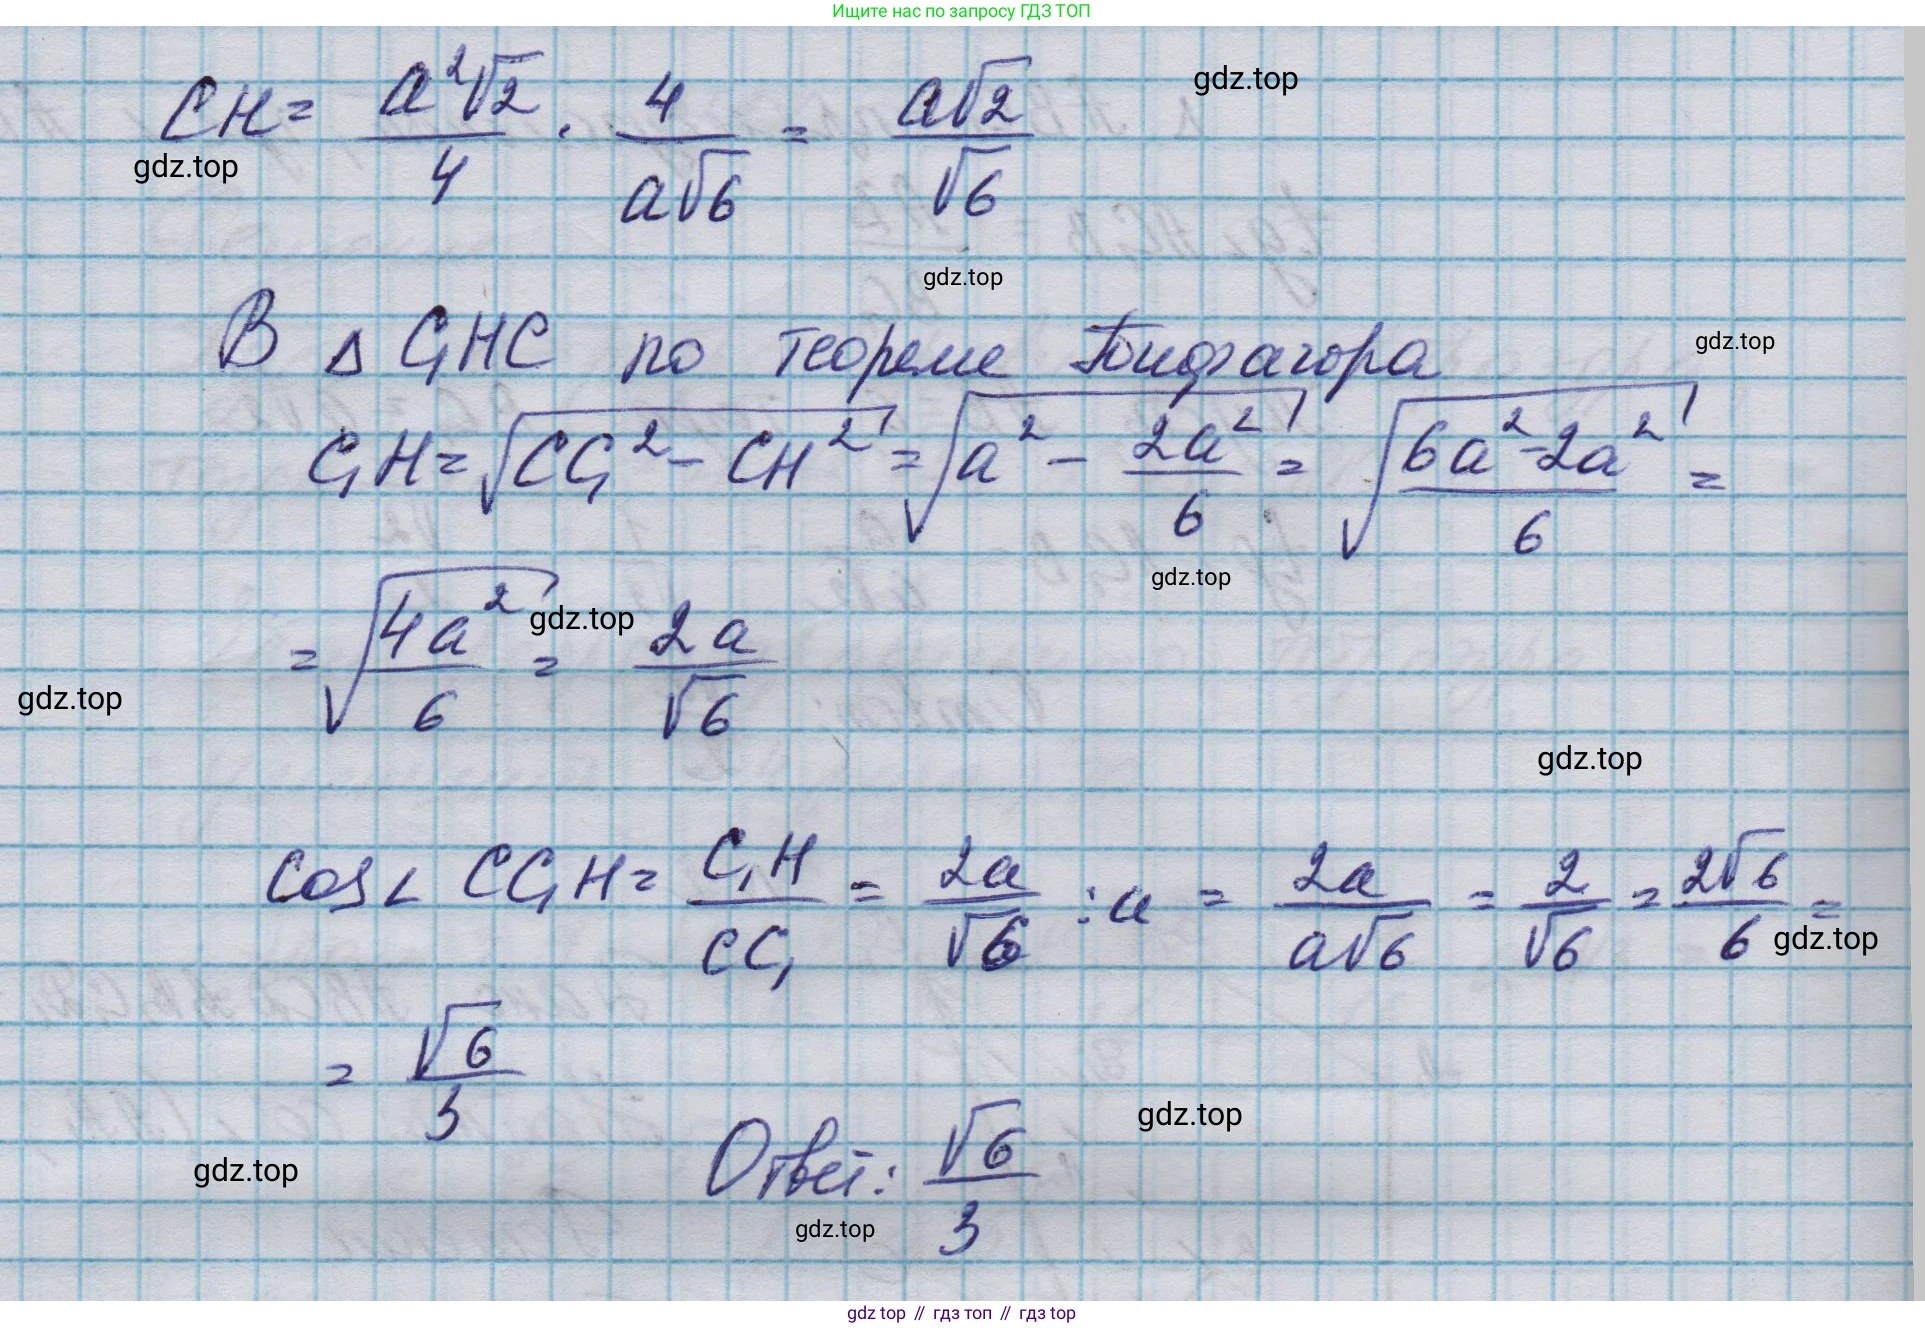 Ищите нас по запросу ГДЗ ТОП
CH = a²√2/4 · 4/a√6 = a√2/√6
gdz.top
gdz.top
gdz.top
В Δ C₁HC по теореме Пифагора
gdz.top
C₁H = √(CC₁² - CH²) = √(a² - 2a²/6) = √((6a² - 2a²)/6) =
gdz.top
= √(4a²/6) = 2a/√6
gdz.top
gdz.top
gdz.top
cos∠ CC₁H = C₁H/CC₁ = 2a/√6 : a = 2a/a√6 = 2/√6 = 2√6/6 =
gdz.top
= √6/3
gdz.top
Ответ: √6/3
gdz.top
gdz.top
gdz top // гдз топ // гдз top